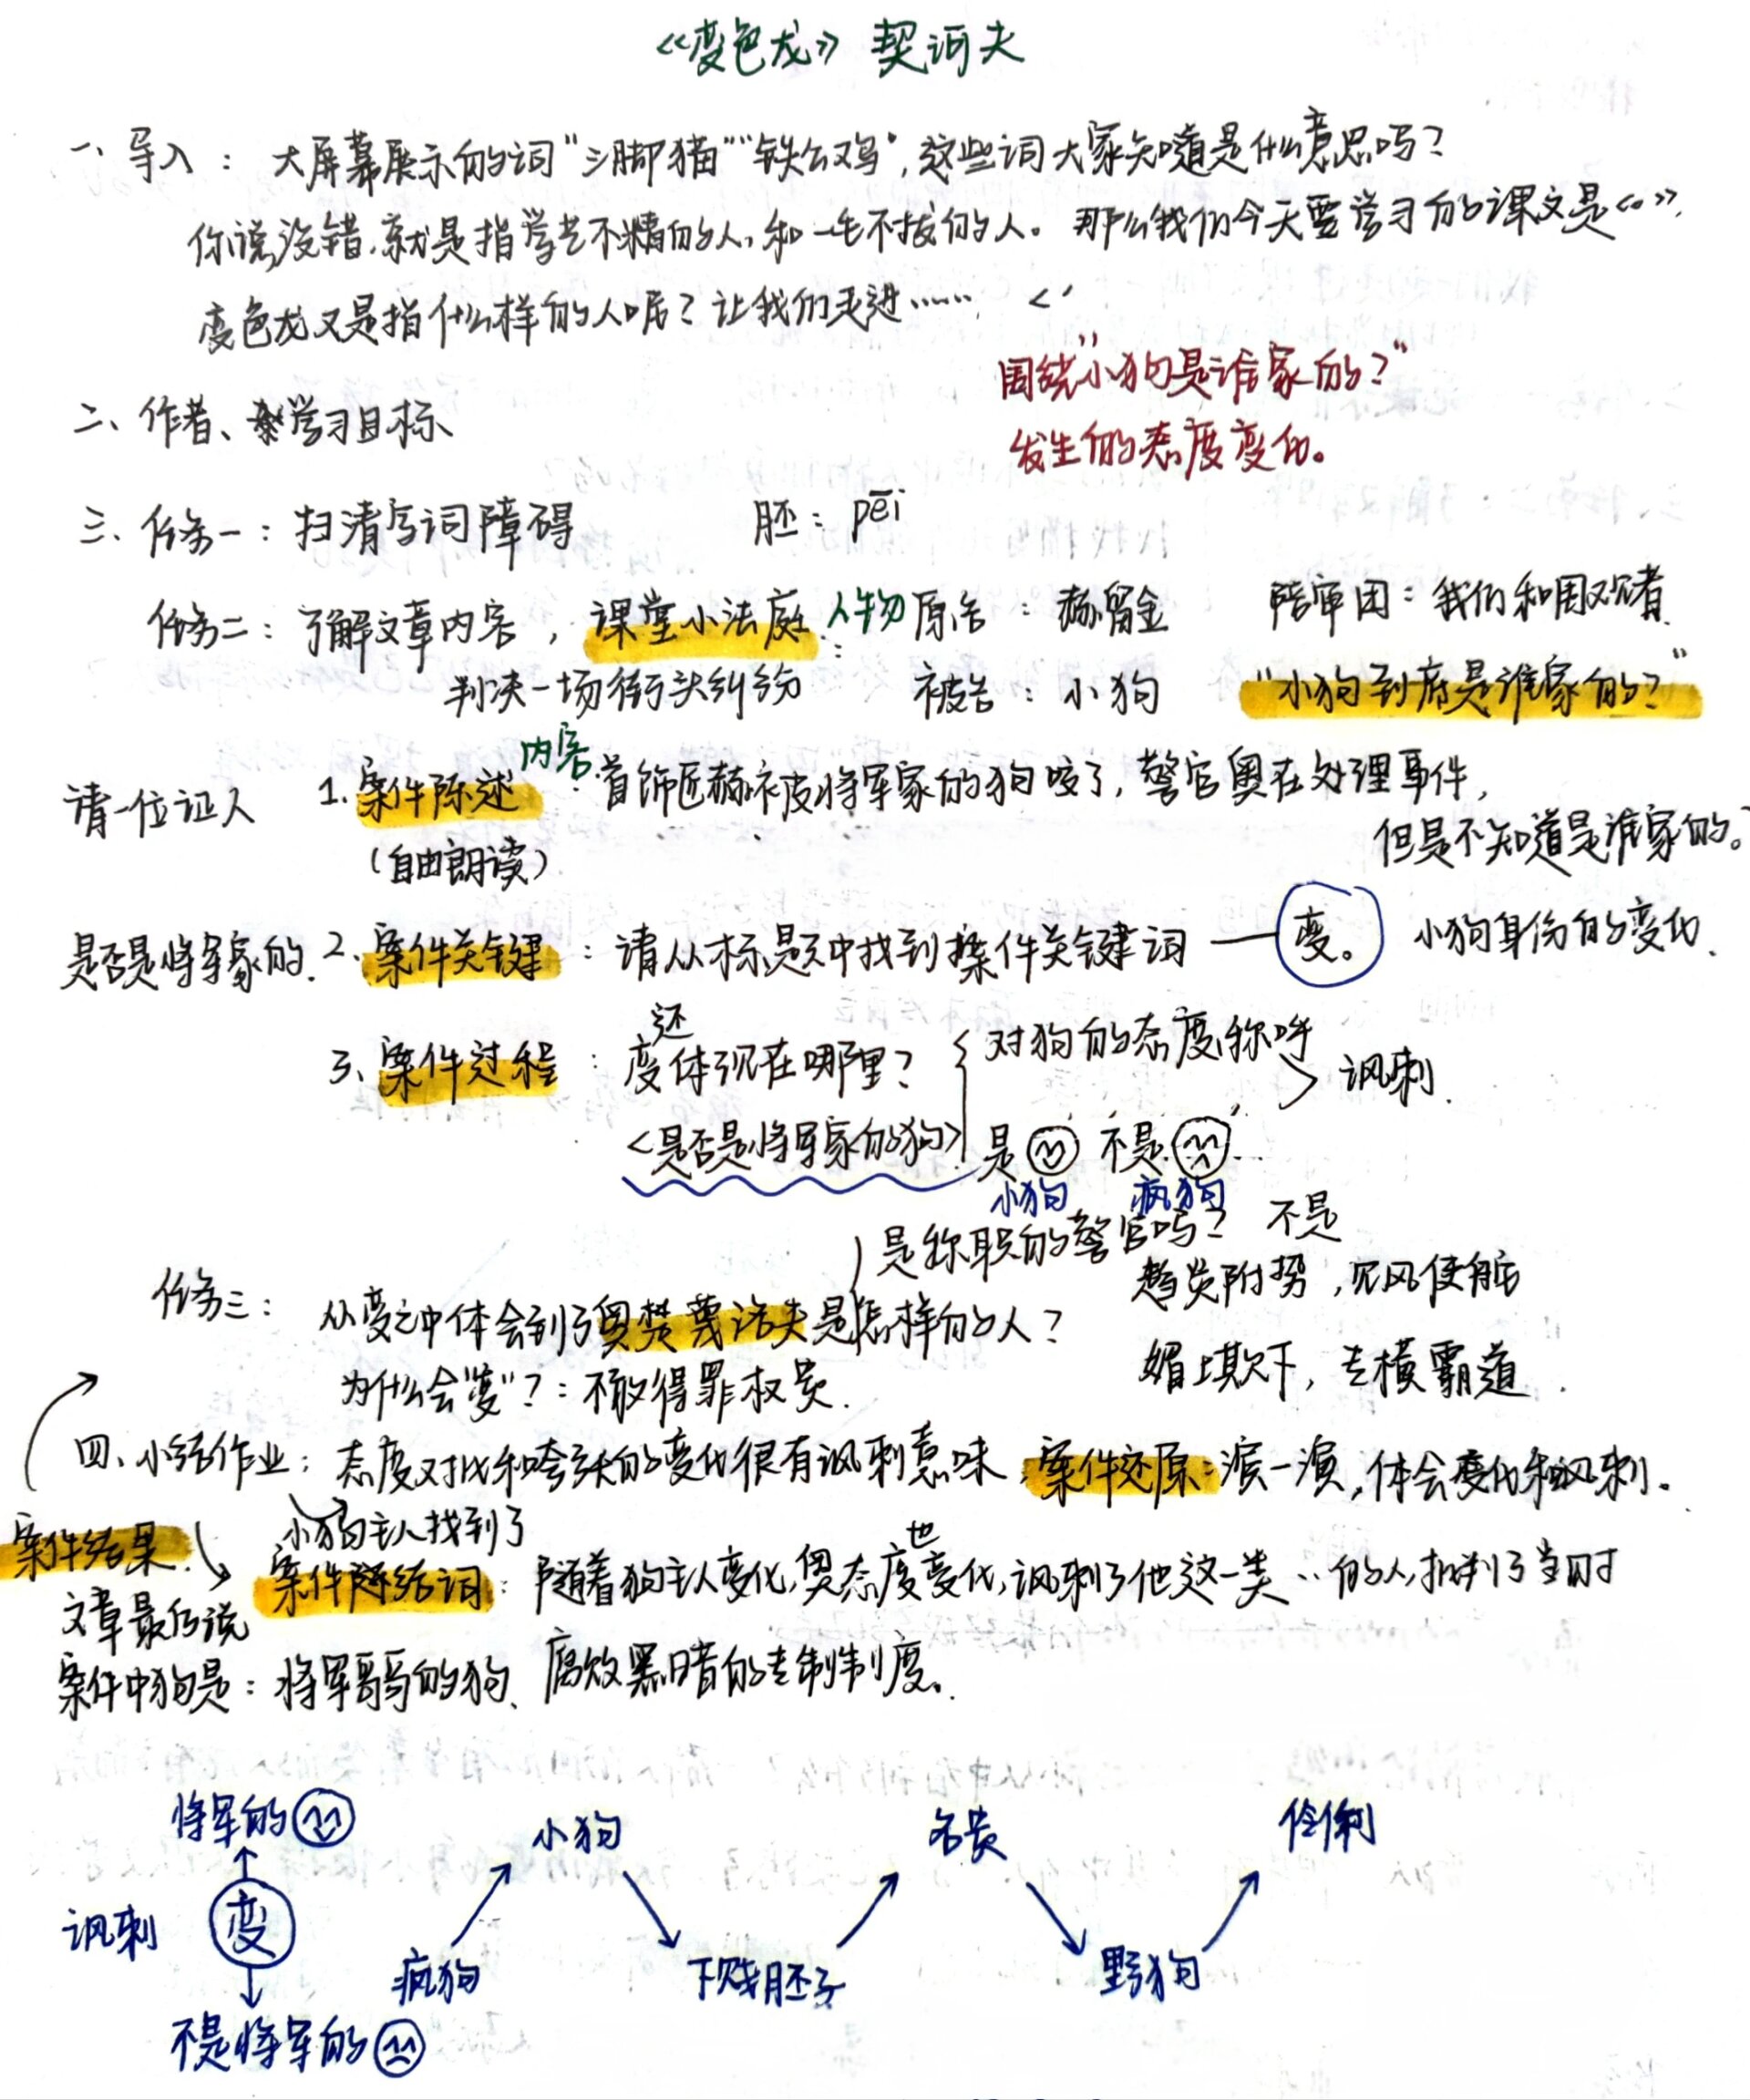 《变色龙》 契诃夫
一、导入：大屏幕展示的词“三脚猫”“铁公鸡”，这些词大家知道是什么意思吗？
你说没错，就是指学艺不精的人，和一毛不拔的人。那么我们今天要学习的课文是《》，
变色龙又是指什么样的人呢？让我们走进……
围绕“小狗是谁家的？”
发生的态度变化。
二、作者、学习目标
三、任务一：扫清字词障碍 胚：pēi
任务二：了解文章内容，课堂小法庭：人物 原告：赫留金 陪审团：我们和围观者
判决一场街头纠纷 被告：小狗 “小狗到底是谁家的？”
请一位证人 1.案件陈述 内容：首饰匠赫被将军家的狗咬了，警官奥在处理事件，
但是不知道是谁家的。
（自由朗读）
是否是将军家的. 2.案件关键：请从标题中找到案件关键词——变。 小狗身份的变化.
3、案件过程：变还体现在哪里？ 对狗的态度、称呼 讽刺.
<是否是将军家的狗> 是 不是
小狗 疯狗
是称职的警官吗？ 不是
任务三：从变之中体会到了奥楚蔑洛夫是怎样的人？ 趋炎附势，见风使舵
为什么会“变”？：不敢得罪权贵. 媚上欺下，专横霸道.
四、小结作业：态度对比和夸张的变化很有讽刺意味，案件还原：演一演，体会变化和讽刺。
小狗主人找到了
案件结果. 案件陈结词：随着狗主人变化，奥态度也变化，讽刺了他这一类··的人，批判了当时
文章最后说
案件中狗是：将军哥哥的狗、 腐败黑暗的专制制度。
将军的 小狗 名贵 伶俐
讽刺 变
疯狗 下贱胚子 野狗
不是将军的